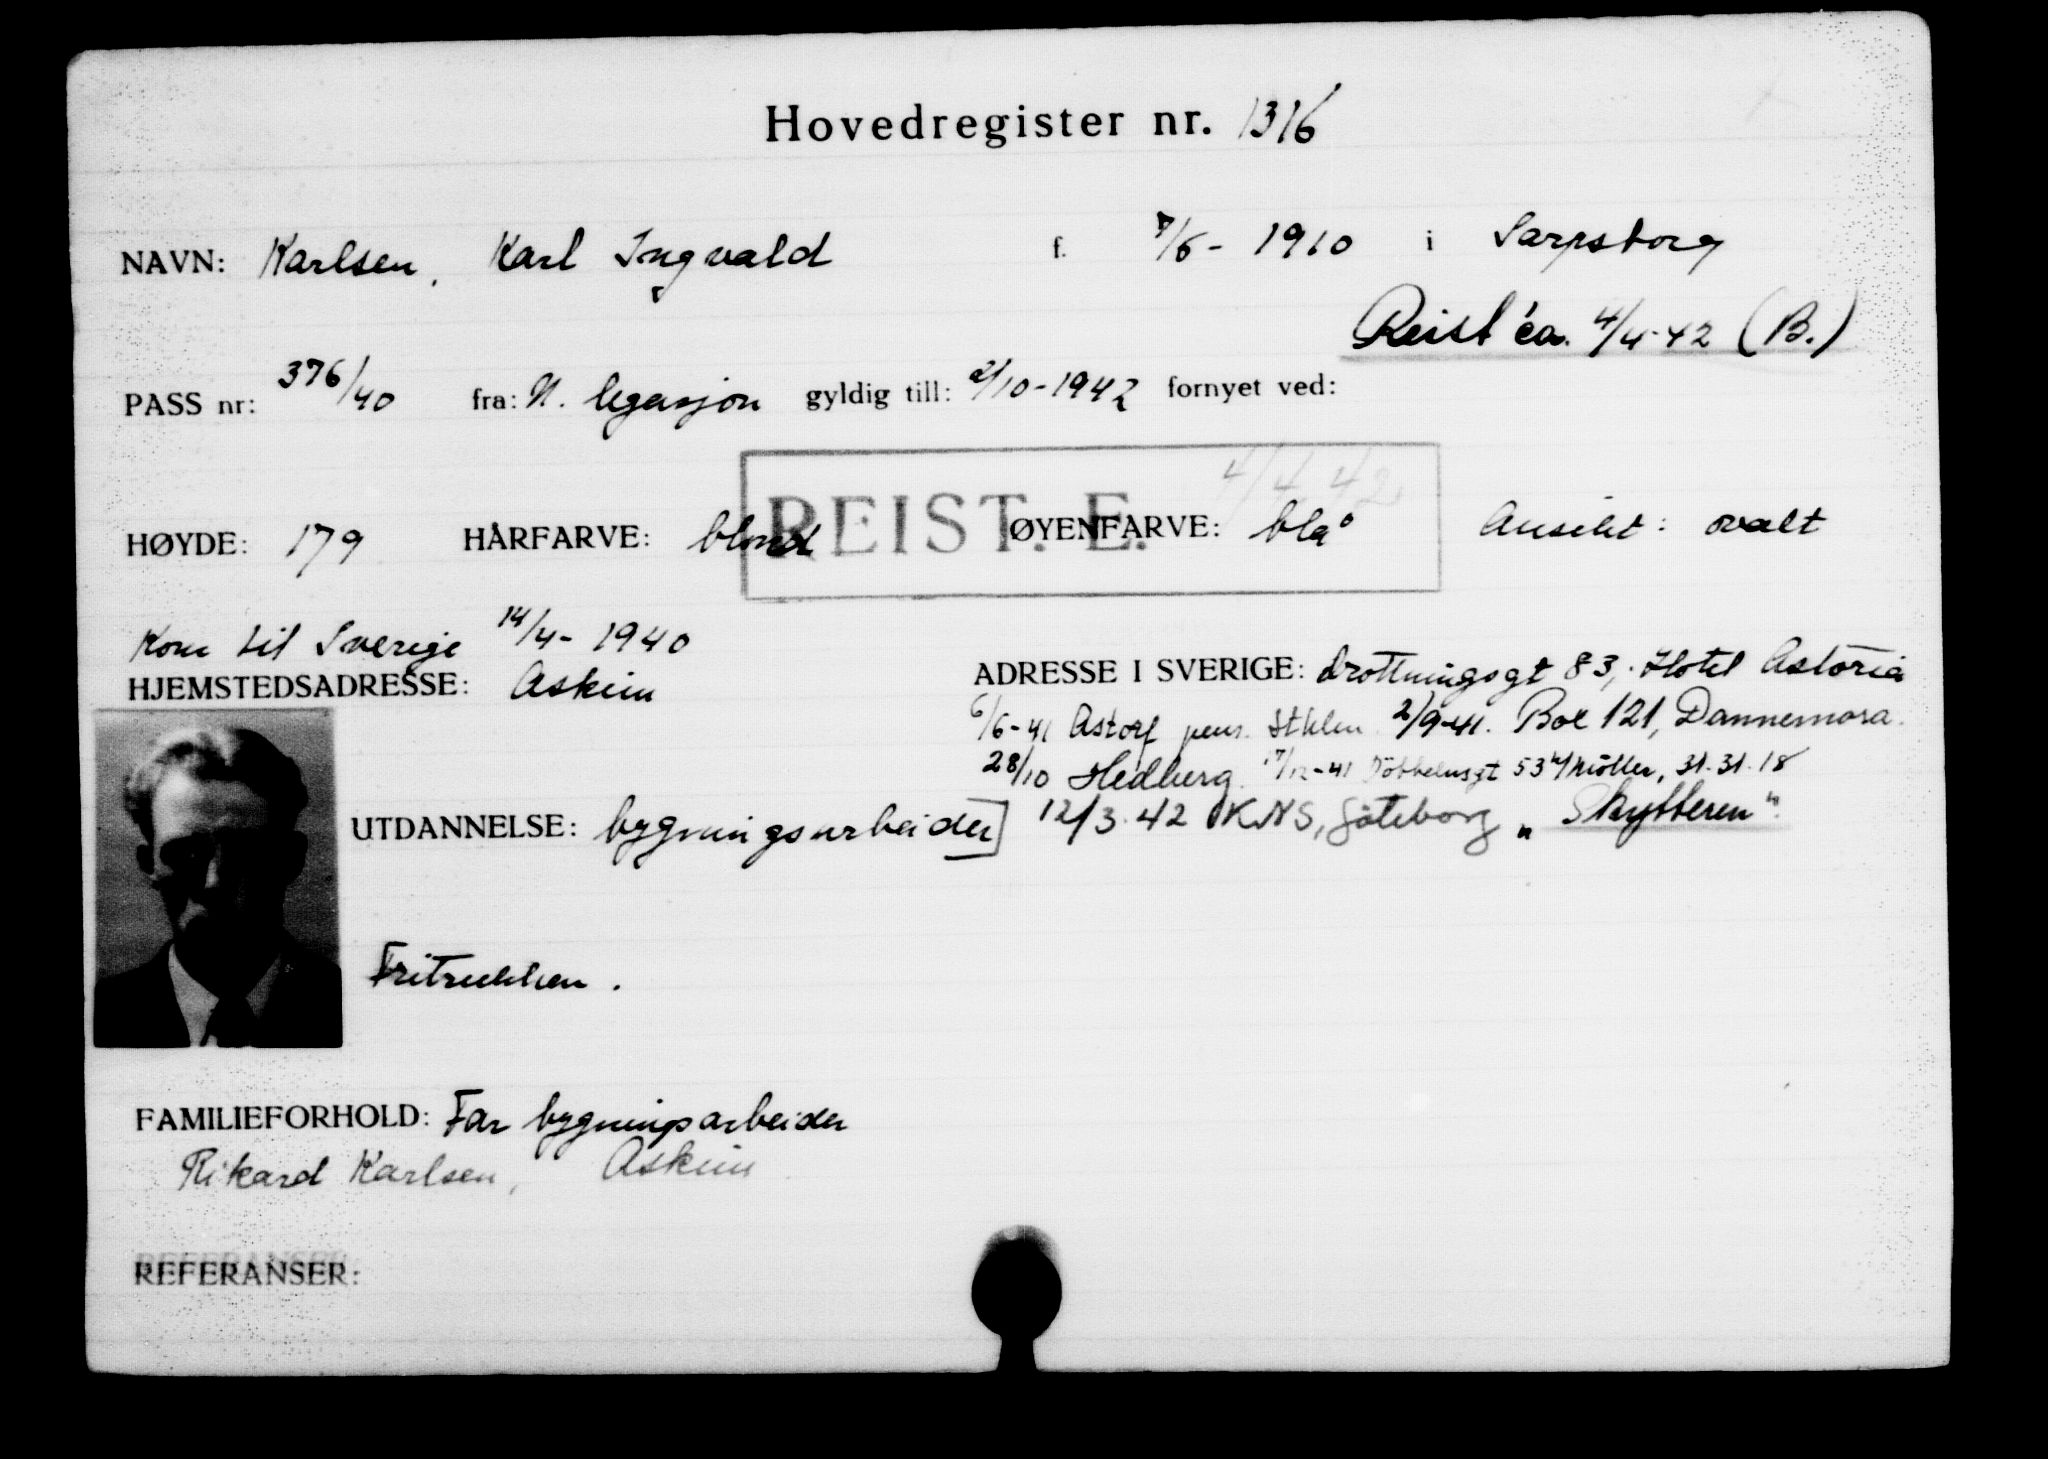 Hovedregister nr. 1316
NAVN: Karlsen, Karl Ingvald f. 7/6 - 1910 i Sarpsborg
Reist ca. 4/4-42 (B.)
PASS nr: 376/40 fra: N. legasjon gyldig till: 2/10-1942 fornyet ved:
4/4 42
REIST. E.
HØYDE: 179 HÅRFARVE: blond ØYENFARVE: blå Ansikt: ovalt
Kom til Sverige 14/4- 1940
HJEMSTEDSADRESSE: Askim
ADRESSE I SVERIGE: Drottningsgt 83, Hotel Astoria
6/6-41 Astorf pens. Sthlm 2/9-41. Box 121, Dannemora.
28/10 Hedberg. 17/12-41 Döbbelnsgt 53 Möller, 31.31.18
UTDANNELSE: bygningsarbeider] 12/3.42 KNS, Göteborg „Skytteren".
Fritrukken.
FAMILIEFORHOLD: Far bygningsarbeider
Rikard Karlsen, Askim
REFERANSER: